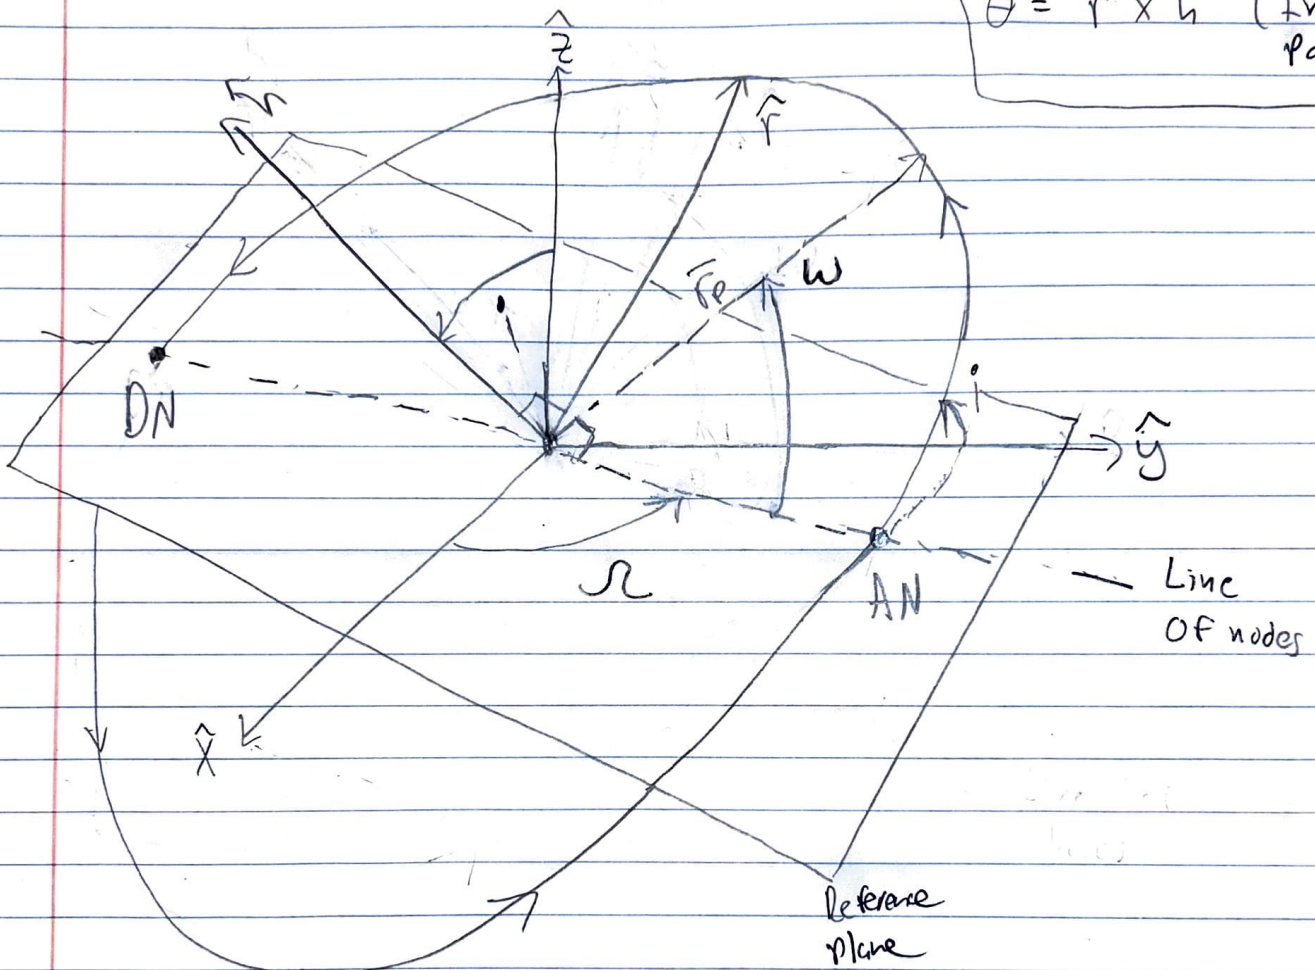 θ = r x h
ẑ
h
r̂
r̄p
ω
i
i
DN
ŷ
Ω
AN
Line
Of nodes
x̂
Reference
plane